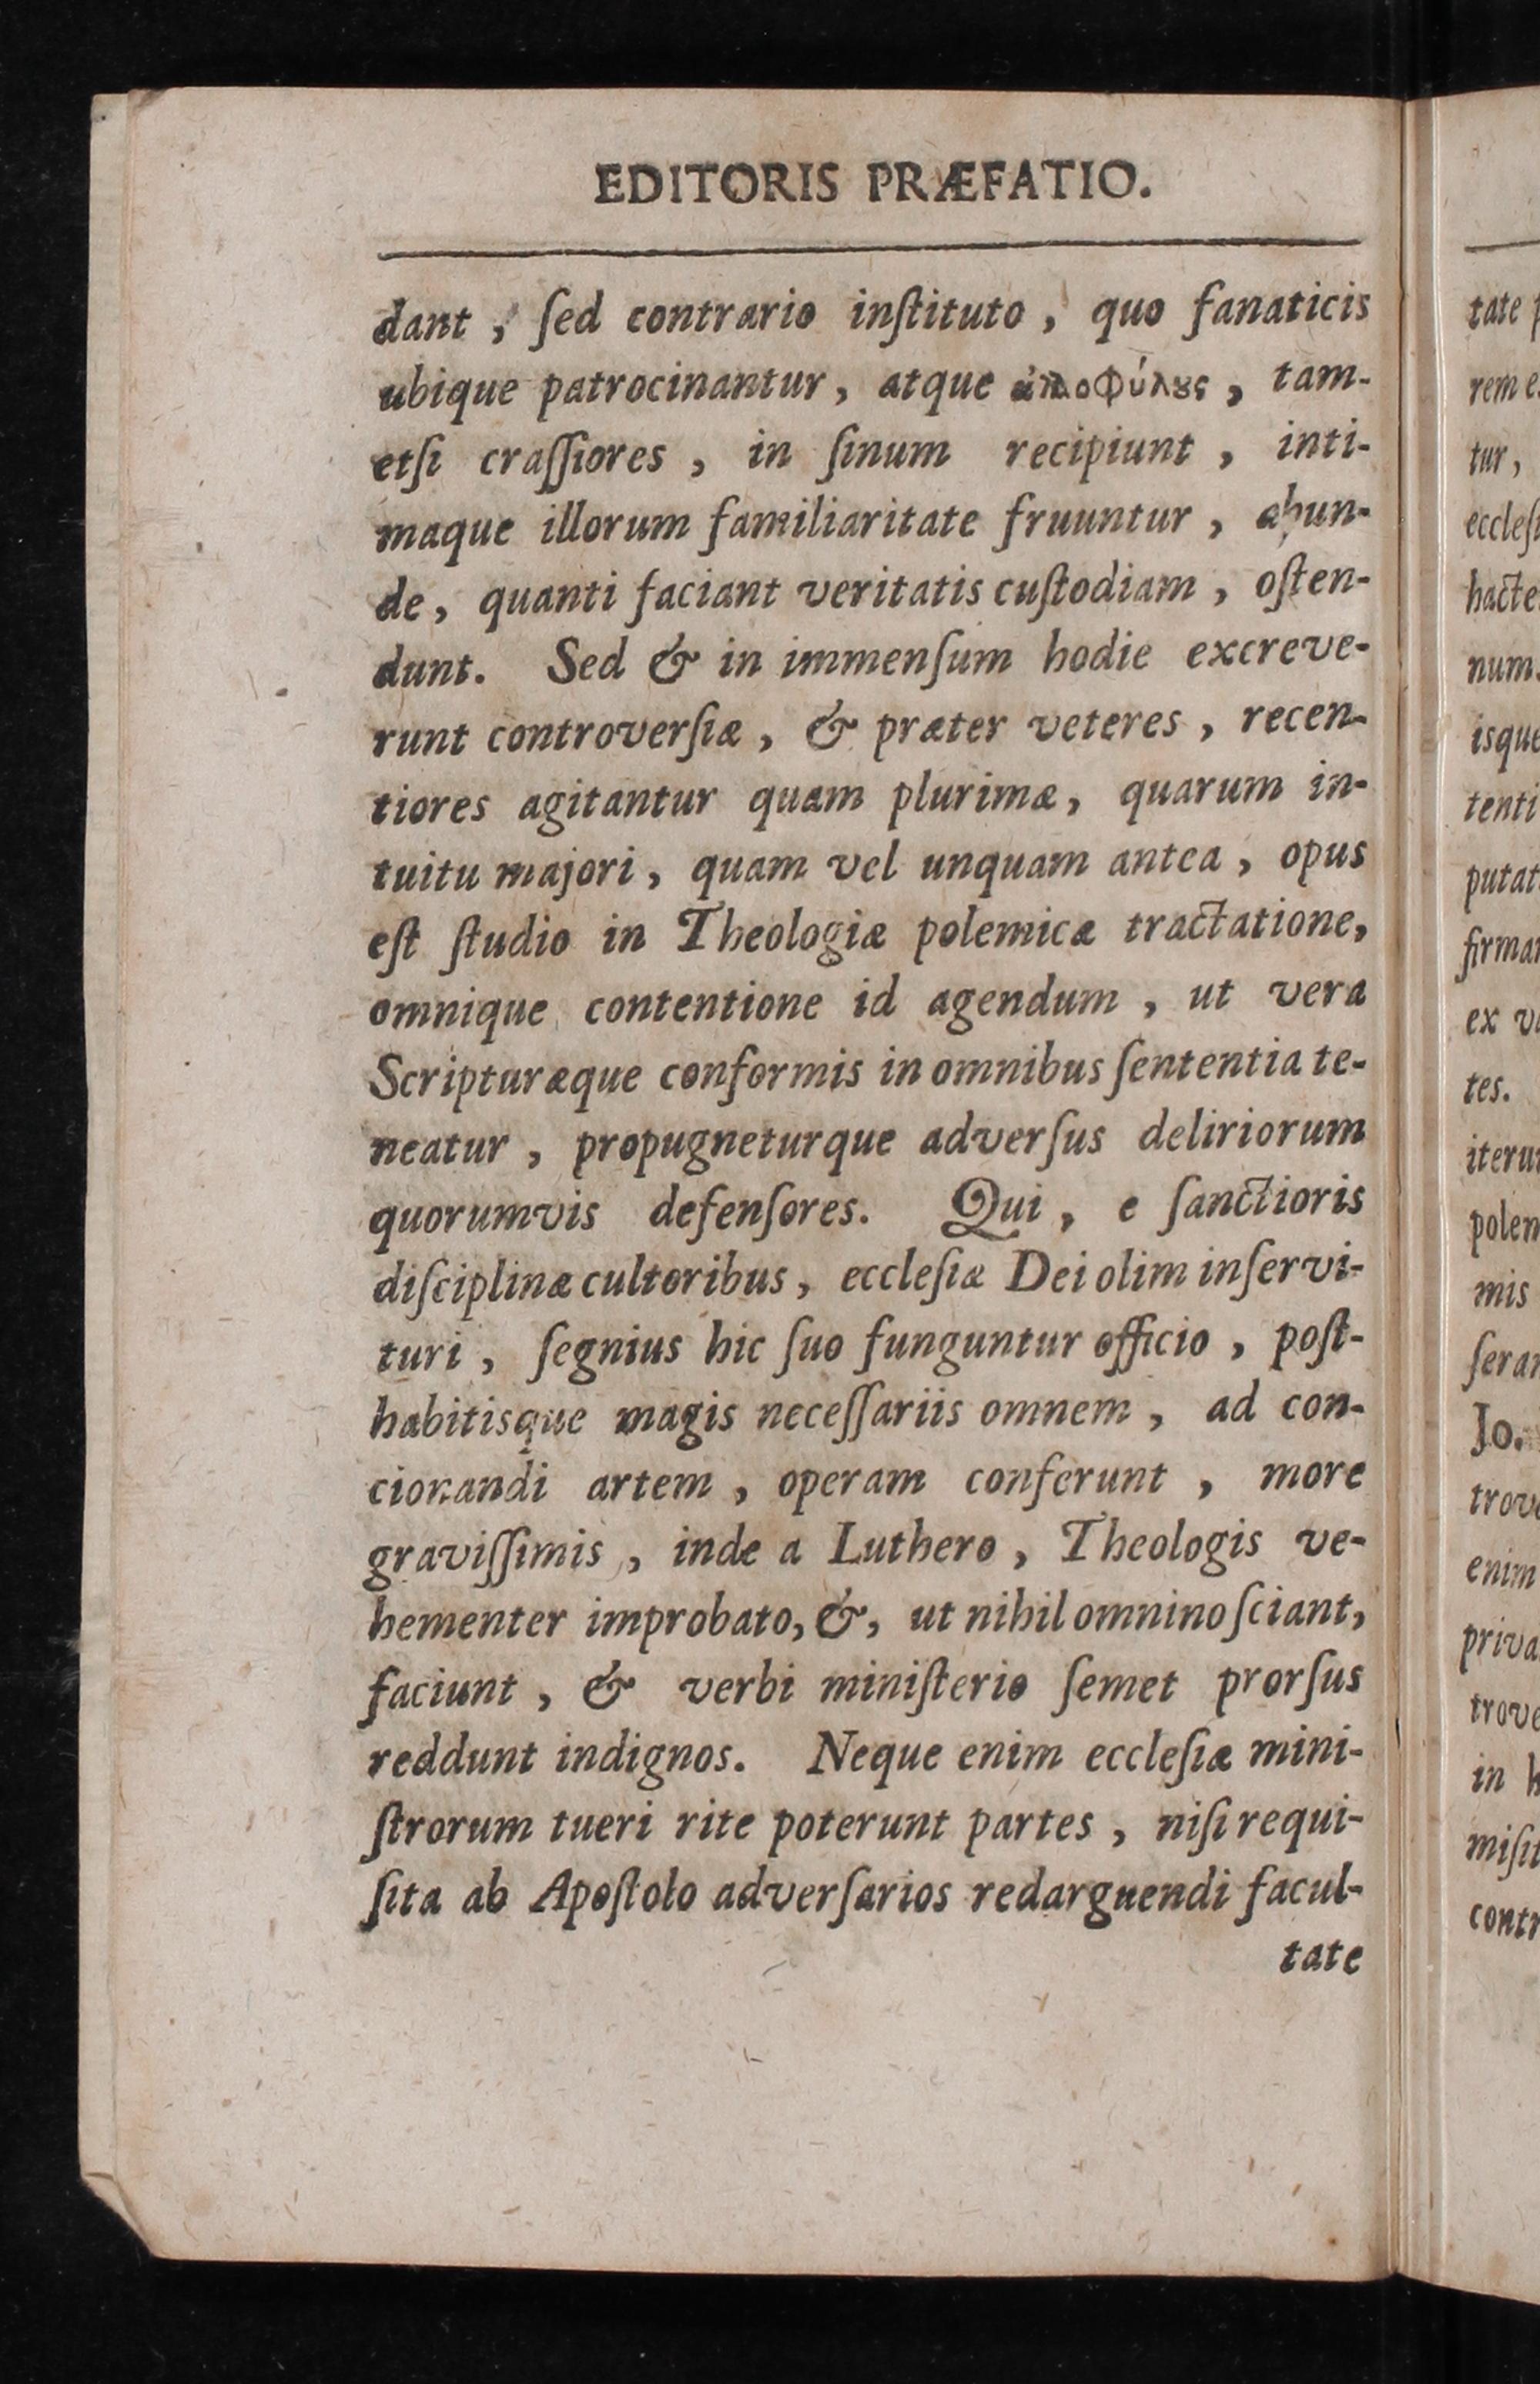 EDITORIS PRÆFATIO.
dant, ſed contrario inſtituto, quo fanaticis
ubique patrocinantur, atque ἀποφύλȣς, tam-
etſi craſſiores, in ſinum recipiunt, inti-
maque illorum familiaritate fruuntur, abun-
de, quanti faciant veritatis cuſtodiam, oſten-
dunt. Sed & in immenſum hodie excreve-
runt controverſiæ, & præter veteres, recen-
tiores agitantur quam plurimæ, quarum in-
tuitu majori, quam vel unquam antea, opus
eſt ſtudio in Theologiæ polemicæ tractatione,
omnique contentione id agendum, ut vera
Scripturæque conformis in omnibus ſententia te-
neatur, propugneturque adverſus deliriorum
quorumvis defenſores. Qui, e ſanctioris
diſciplinæ cultoribus, eccleſiæ Dei olim inſervi-
turi, ſegnius hic ſuo funguntur officio, poſt-
habitisque magis neceſſariis omnem, ad con-
cionandi artem, operam conferunt, more
graviſſimis, inde a Luthero, Theologis ve-
hementer improbato, &, ut nihil omnino ſciant,
faciunt, & verbi miniſterio ſemet prorſus
reddunt indignos. Neque enim eccleſiæ mini-
ſtrorum tueri rite poterunt partes, niſi requi-
ſita ab Apoſtolo adverſarios redarguendi facul-
tate